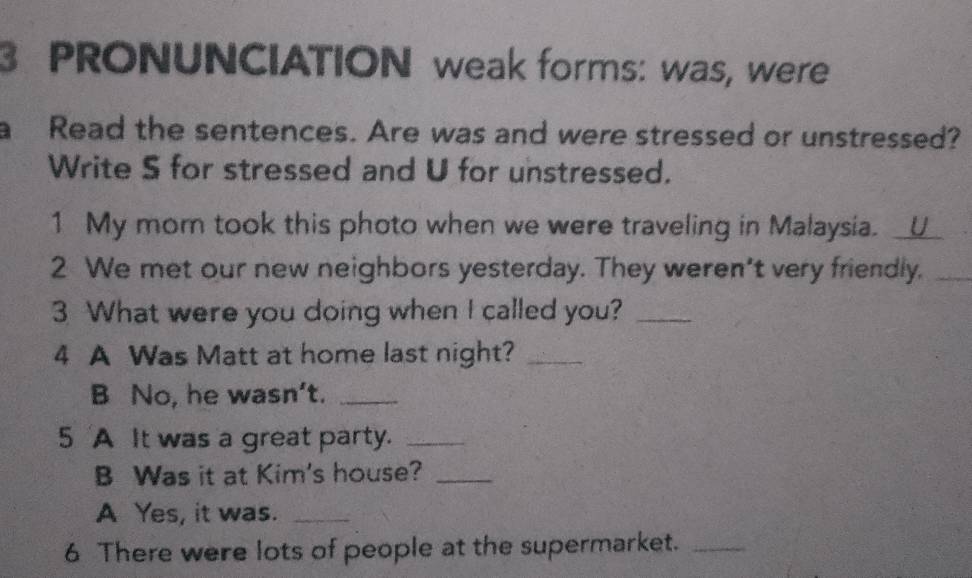 3 PRONUNCIATION weak forms: was, were
a Read the sentences. Are was and were stressed or unstressed?
Write S for stressed and U for unstressed.
1 My mom took this photo when we were traveling in Malaysia. __U__
2 We met our new neighbors yesterday. They weren't very friendly. ____
3 What were you doing when I called you? ____
4 A Was Matt at home last night? ____
B No, he wasn't. ____
5 A It was a great party. ____
B Was it at Kim's house? ____
A Yes, it was. ____
6 There were lots of people at the supermarket. ____